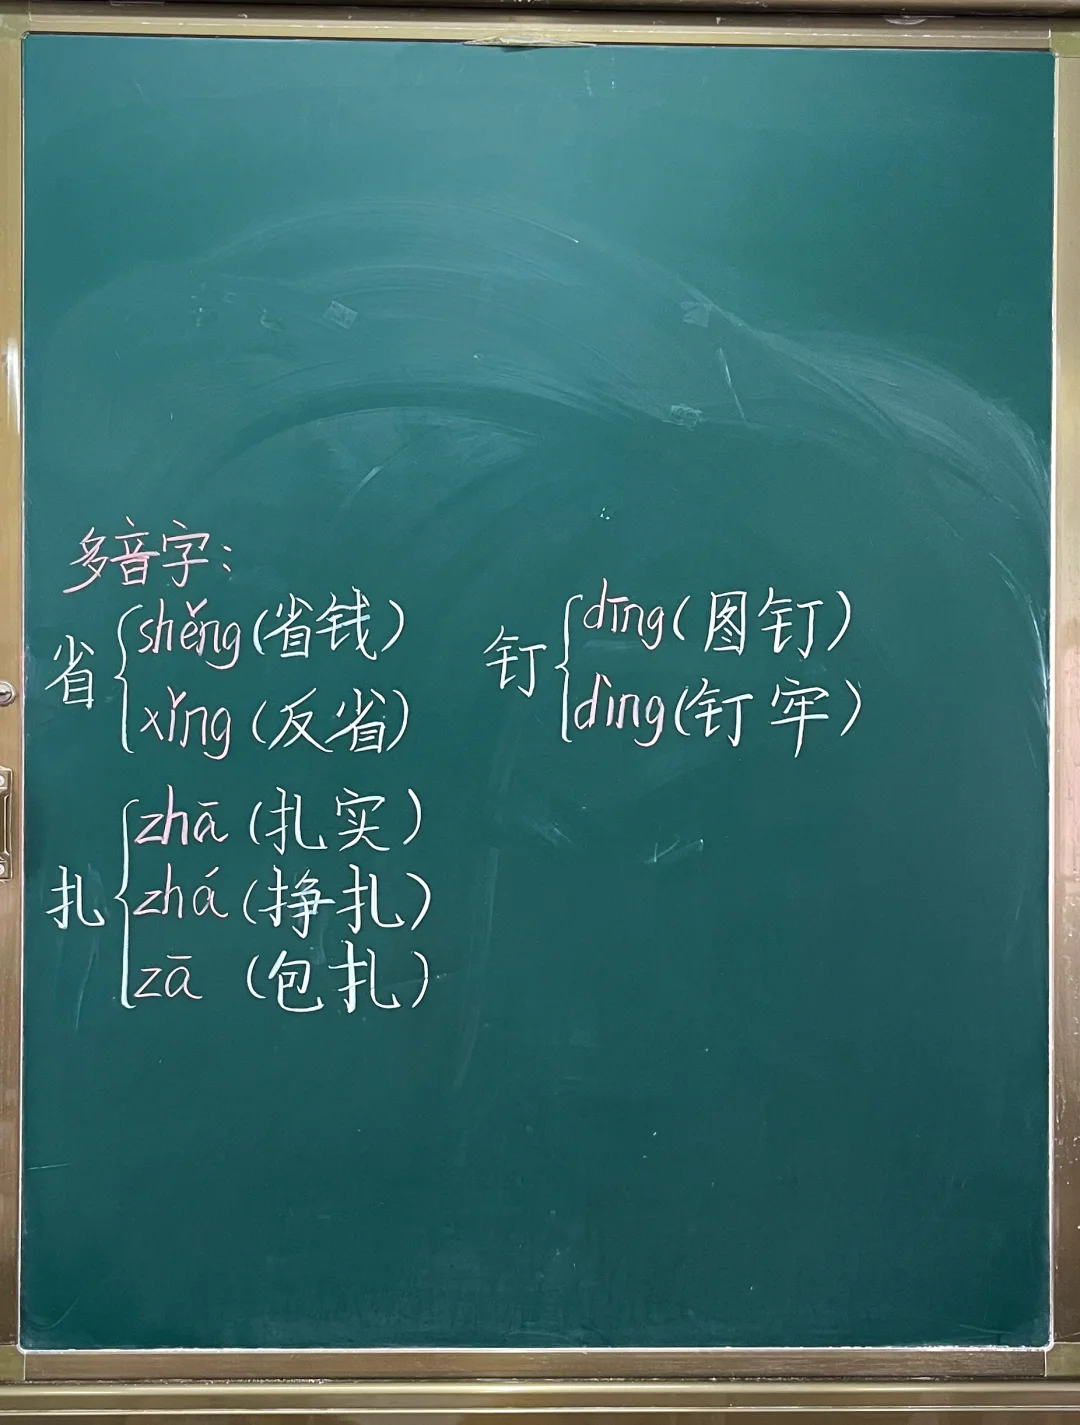 多音字：
省
shěng（省钱）
xǐng（反省）
钉
dīng（图钉）
dìng（钉牢）
扎
zhā（扎实）
zhá（挣扎）
zā（包扎）